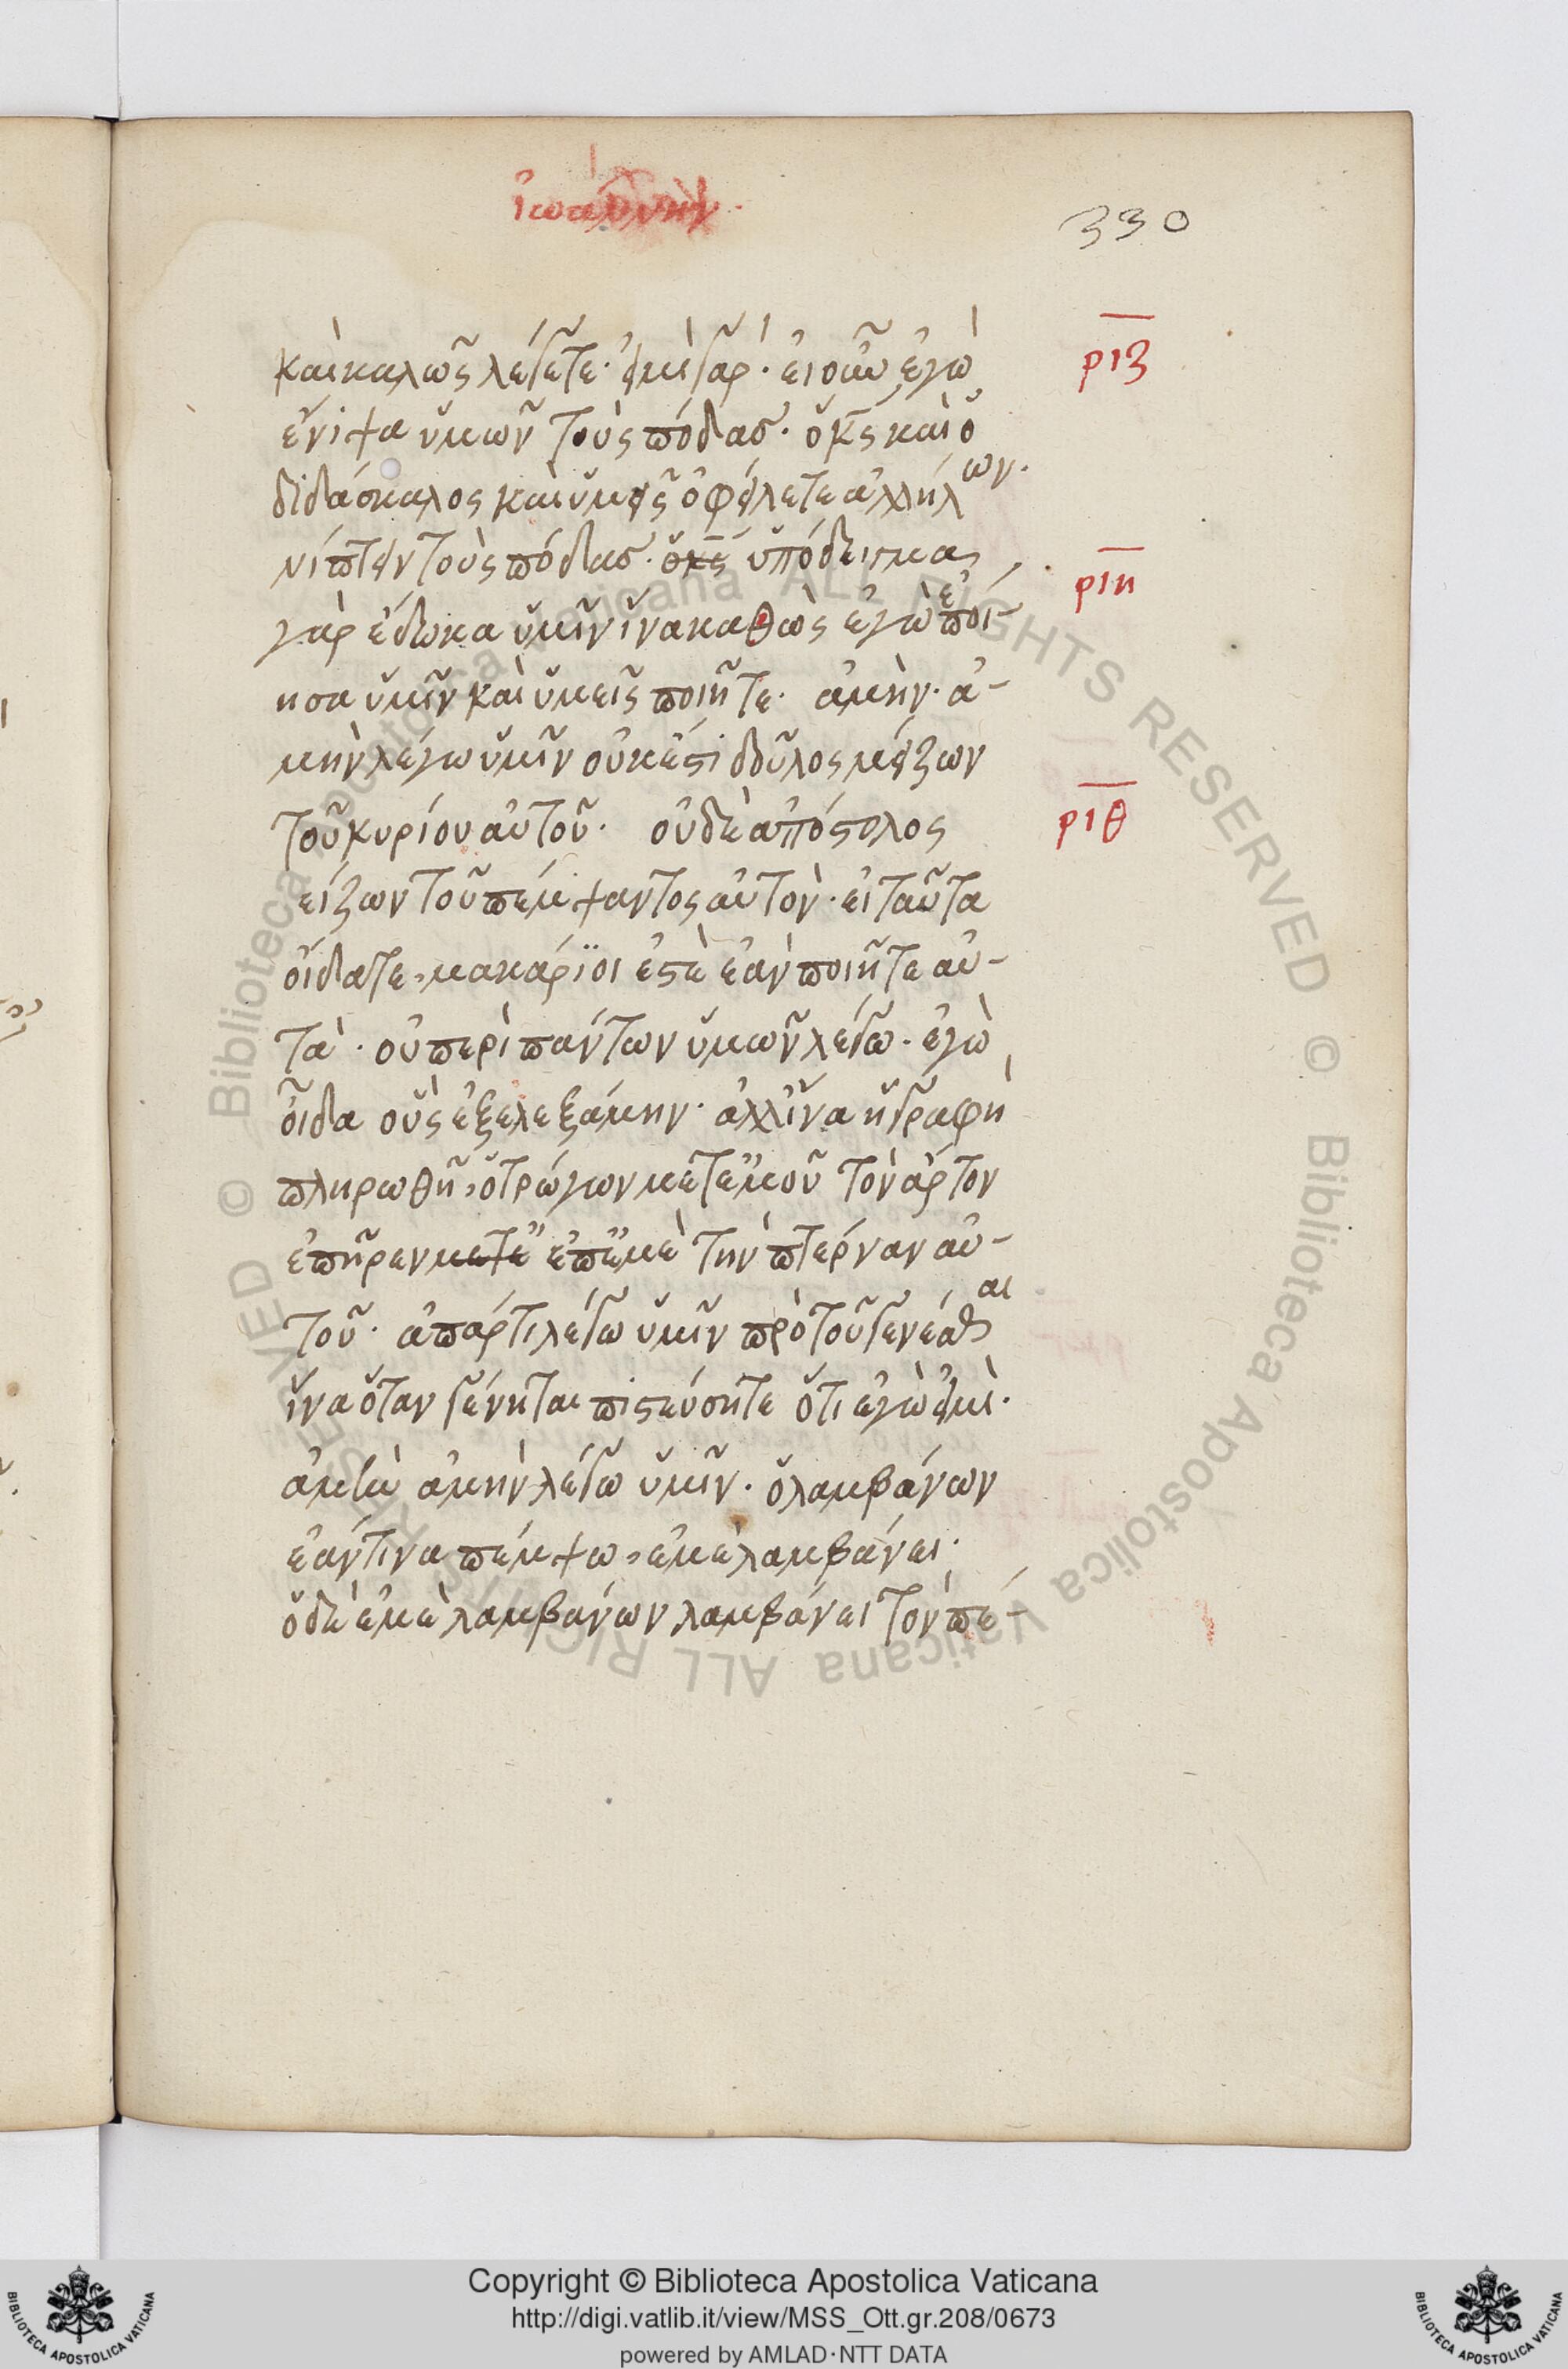 ἰωάννην.
330
καὶ καλῶς λέγετε· εἰμὶ γάρ· εἰ οὖν ἐγὼ
ριζ
ἔνιψα ὑμῶν τοὺς πόδας· ὁ κς καὶ ὁ
διδάσκαλος καὶ ὑμεῖς ὀφείλετε ἀλλήλων·
νίπτειν τοὺς πόδας· ὁ κς ὑπόδειγμα
ριη
γὰρ ἔδωκα ὑμῖν ἵνα καθὼς ἐγὼ ἐποί-
ησα ὑμῖν καὶ ὑμεῖς ποιῆτε· ἀμὴν· ἀ-
μὴν λέγω ὑμῖν οὐκ ἔστι δοῦλος μείζων
τοῦ κυρίου αὐτοῦ· οὐδὲ ἀπόστολος
ριθ
είζων τοῦ πέμψαντος αὐτὸν· εἰ ταῦτα
οἴδατε, μακάριοι ἐστὲ ἐὰν ποιῆτε αὐ-
τὰ· οὐ περὶ πάντων ὑμῶν λέγω· ἐγὼ
οἶδα οὓς ἐξελεξάμην· ἀλλ' ἵνα ἡ γραφὴ
πληρωθῆ, ὁ τρώγων μετ' ἐμοῦ τὸν ἄρτον
ἐπῆρεν μετε ἐπ' ἐμὲ τὴν πτέρναν αὐ-
τοῦ· ἀπάρτι λέγω ὑμῖν πρὸ τοῦ γενέσθαι
ἵνα ὅταν γένηται πιστεύσητε ὅτι ἐγὼ εἰμὶ·
ἀμὴν ἀμὴν λέγω ὑμῖν· ὁ λαμβάνων
ἐάν τινα πέμψω, ἐμὲ λαμβάνει·
ὁ δὲ ἐμὲ λαμβάνων λαμβάνει τὸν πέ-
Copyright © Biblioteca Apostolica Vaticana
http://digi.vatlib.it/view/MSS_Ott.gr.208/0673
powered by AMLAD·NTT DATA